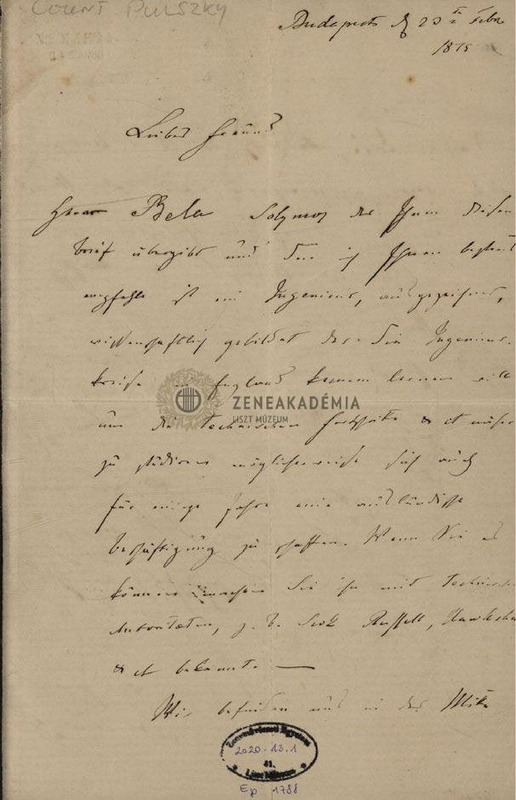 COUNT PULSZKY
Budapest d 23 t Febr
1875
Lieber Freund
Herr Bela Solymos der Ihnen diesen
Brief übergibt und den ich Ihnen bestens
empfehle ist ein Ingenieur, ausgezeichnet,
wissenschaftlich gebildet der die Ingenieur-
kreise in England kennen lernen will
um die technischen Fortschritte & ct näher
zu studiren möglicherweise sich auch
für einige Jahre eine ausländische
beschäftigung zu schaffen. Wenn Sie es
können machen Sie ihn mit technischen
Autoritäten, z. b. Scott Russell,
& ct bekannt. —
Wir befinden uns in der Mitte
ZENEAKADÉMIA
LISZT MÚZEUM
Zeneművészeti Egyetem
2020 -13. 1
Liszt Múzeum
Ep 1788